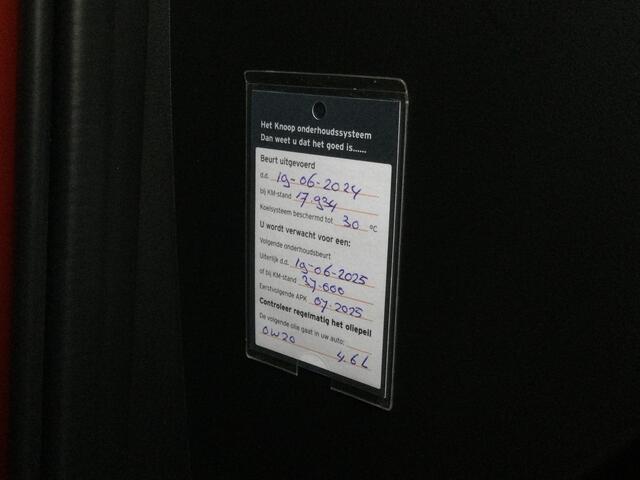 Het Knoop onderhoudssysteem
Dan weet u dat het goed is......
Beurt uitgevoerd
d.d. 19-06-2024
bij KM-stand 17.934
Koelsysteem beschermd tot 30 °C
U wordt verwacht voor een:
Volgende onderhoudsbeurt
Uiterlijk d.d. 19-06-2025
of bij KM-stand 37.000
Eerstvolgende APK 07.2025
Controleer regelmatig het oliepeil
De volgende olie gaat in uw auto:
0W20 4.6L